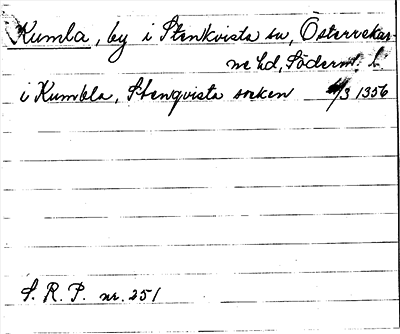 Kumla, by i Stenkvista sn, Österrekar-
ne hd, Söderm. l.
i Kumbla, Stenqvista socken /3 1356
S. R. P. nr. 251